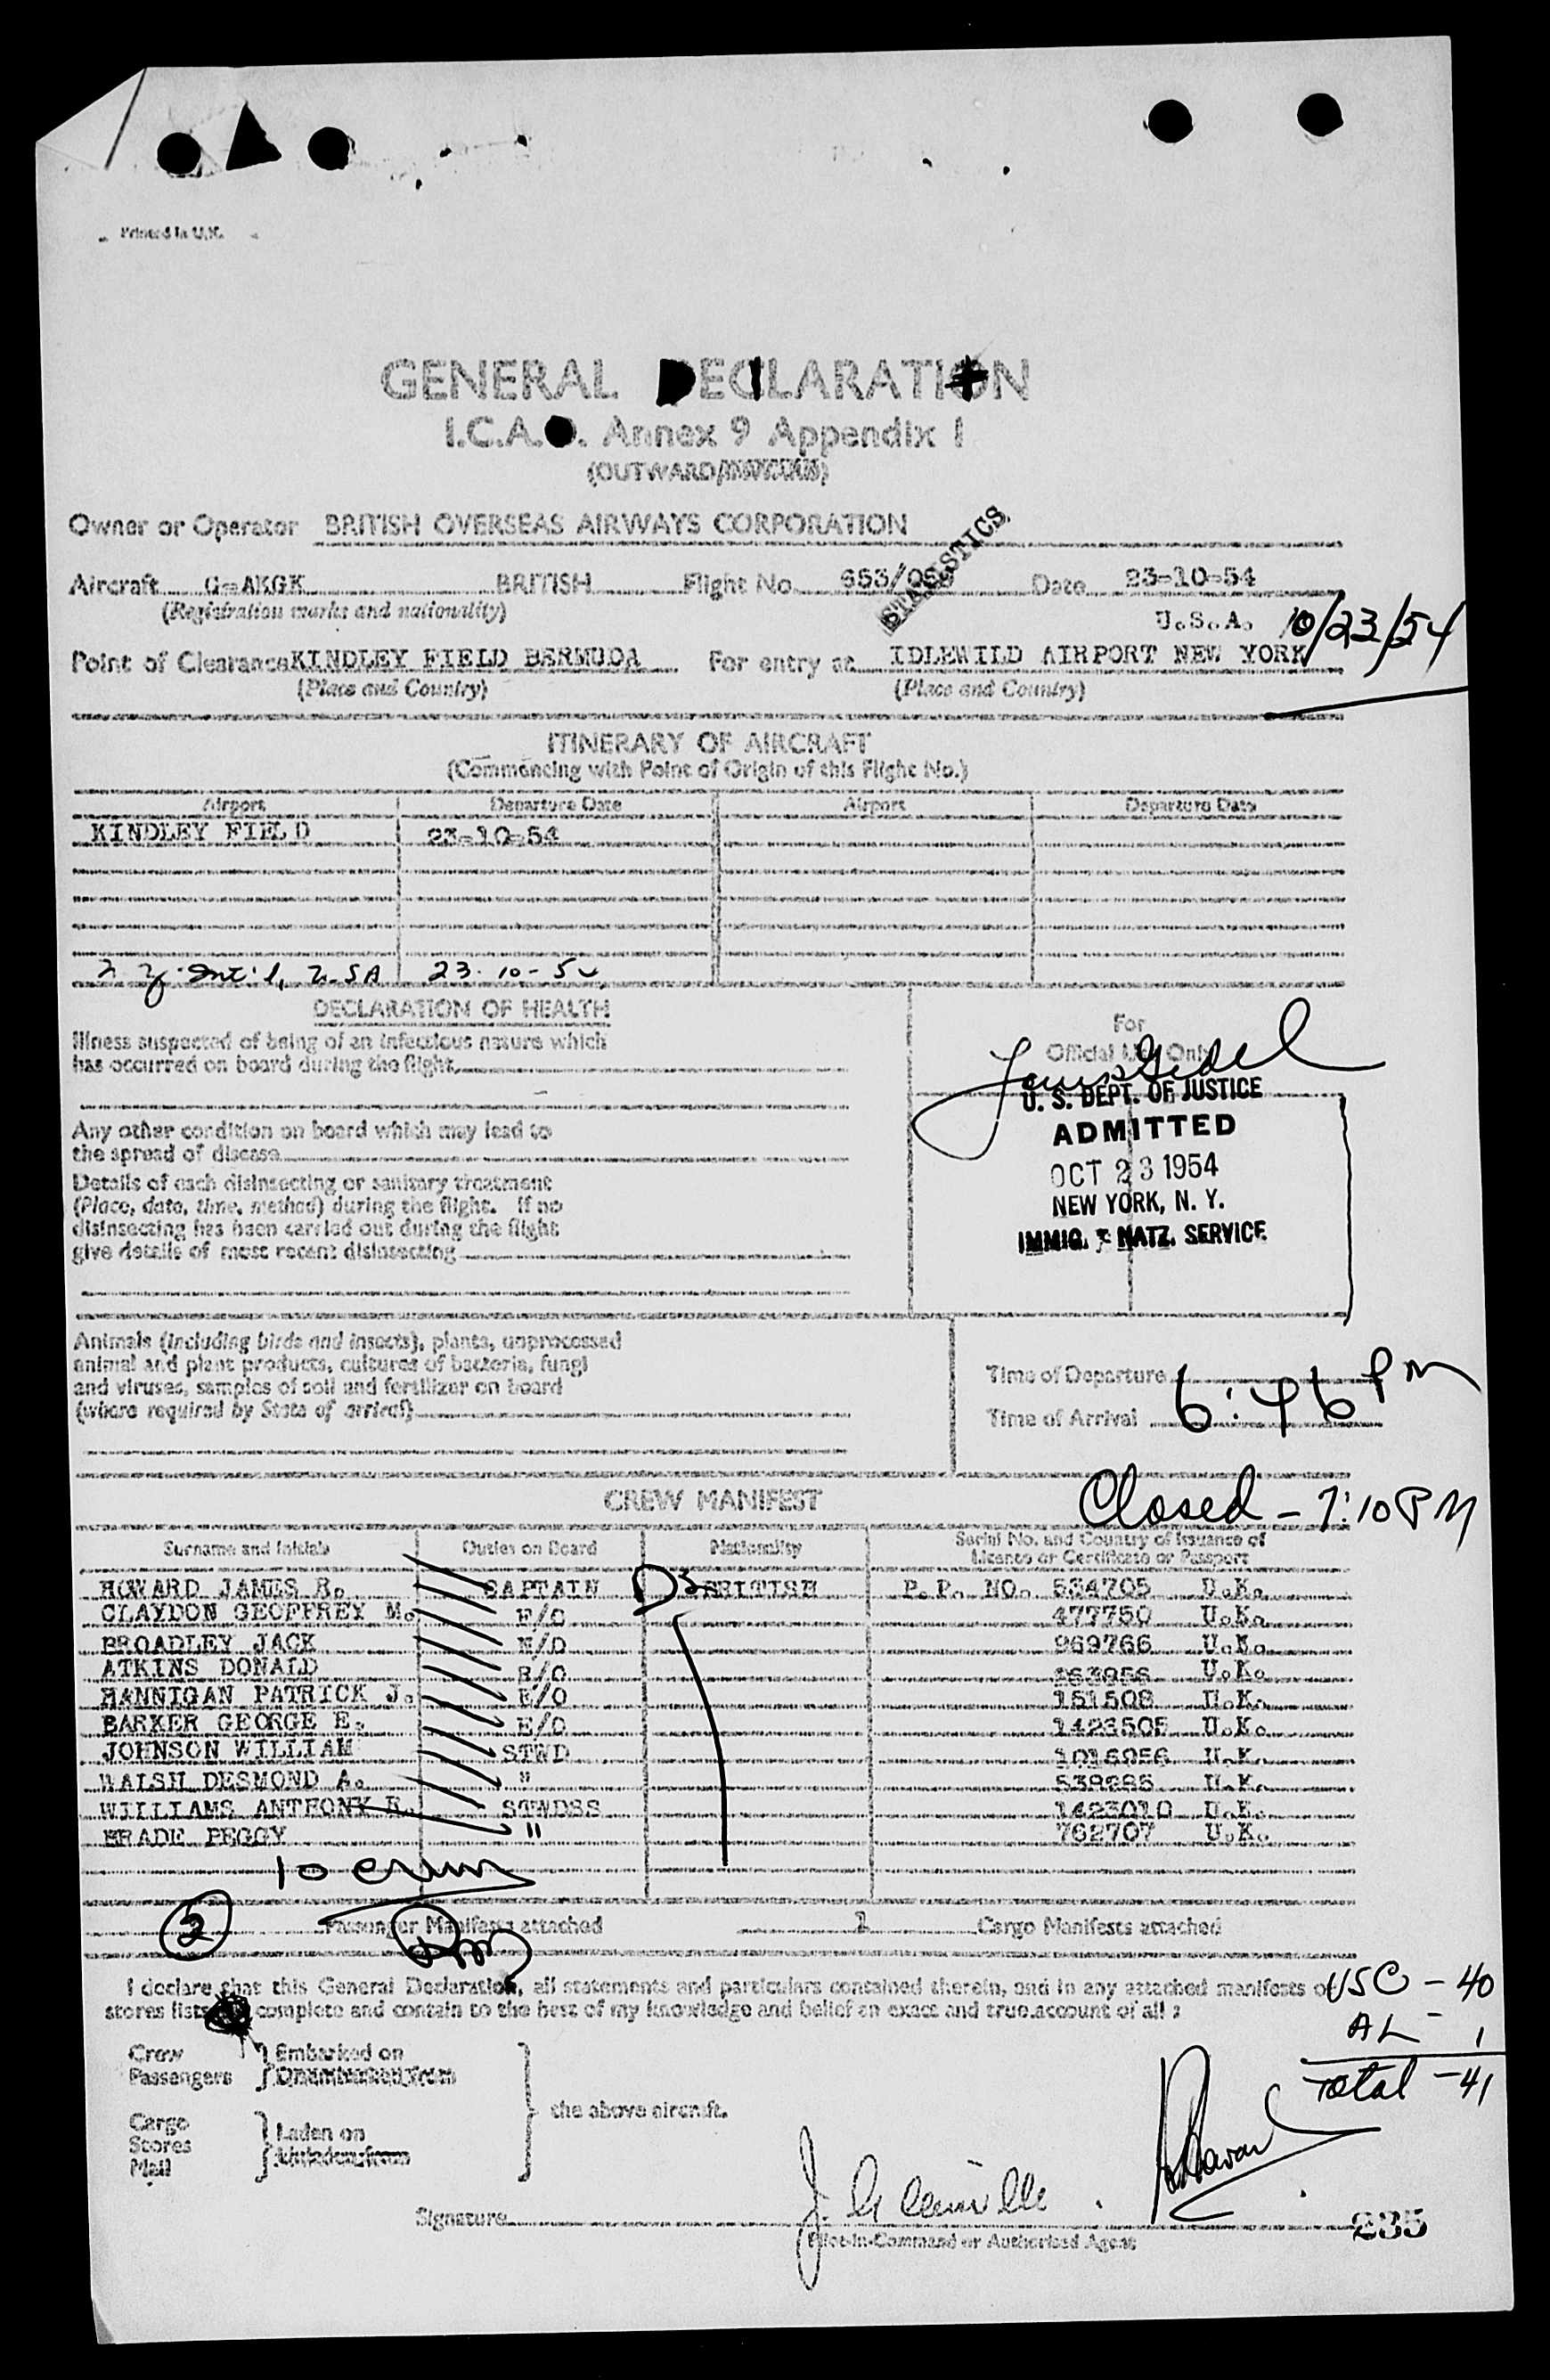 Printed in U.K.
GENERAL DECLARATION
I.C.A.O. Annex 9 Appendix I
(OUTWARD/
Owner or Operator BRITISH OVERSEAS AIRWAYS CORPORATION
STATISTICS
Aircraft G-AKGK BRITISH Flight No. 653/ Date 23-10-54
(Registration marks and nationality)
U.S.A. 10/23/54
Point of Clearance KINDLEY FIELD BERMUDA For entry at IDLEWILD AIRPORT NEW YORK
(Place and Country) (Place and Country)
ITINERARY OF AIRCRAFT
(Commencing with Point of Origin of this Flight No.)
Airport Departure Date Airport Departure Date
KINDLEY FIELD 23-10-54
N Y Int'l, USA 23-10-54
DECLARATION OF HEALTH
Illness suspected of being of an infectious nature which
has occurred on board during the flight
Any other condition on board which may lead to
the spread of disease
Details of each disinsecting or sanitary treatment
(Place, date, time, method) during the flight. If no
disinsecting has been carried out during the flight
give details of most recent disinsecting
For
Official Use Only
U. S. DEPT. OF JUSTICE
ADMITTED
OCT 23 1954
NEW YORK, N. Y.
IMMIG. & NATZ. SERVICE
Animals (including birds and insects), plants, unprocessed
animal and plant products, cultures of bacteria, fungi
and viruses, samples of soil and fertilizer on board
(where required by State of arrival)
Time of Departure
Time of Arrival 6:46 PM
Closed - 7:10 PM
CREW MANIFEST
Surname and Initials Duties on Board Nationality Serial No. and Country of Issuance of
Licence or Certificate or Passport
HOWARD JAMES R. CAPTAIN BRITISH P.P. NO. 534705 U.K.
CLAYDON GEOFFREY M. F/O 477750 U.K.
BROADLEY JACK 969766 U.K.
ATKINS DONALD R/O U.K.
HANNIGAN PATRICK J. E/O 151508 U.K.
BARKER GEORGE E. E/O 1423505 U.K.
JOHNSON WILLIAM STWD U.K.
WALSH DESMOND A. " U.K.
WILLIAMS ANTHONY STWDSS 1423010 U.K.
BRADE PEGGY " 762707 U.K.
10 crew
2 Passenger Manifests attached 1 Cargo Manifests attached
I declare that this General Declaration, all statements and particulars contained therein, and in any attached manifests or
stores lists complete and contain to the best of my knowledge and belief an exact and true account of all :
USC - 40
AL - 1
Total - 41
Crew
Passengers
Embarked on
Cargo
Stores
Mail
Laden on
the above aircraft.
Signature
Pilot-in-Command or Authorised Agent
235